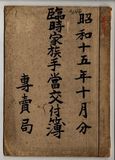 昭和十五年十月分
臨時家族手當交付簿
專賣局